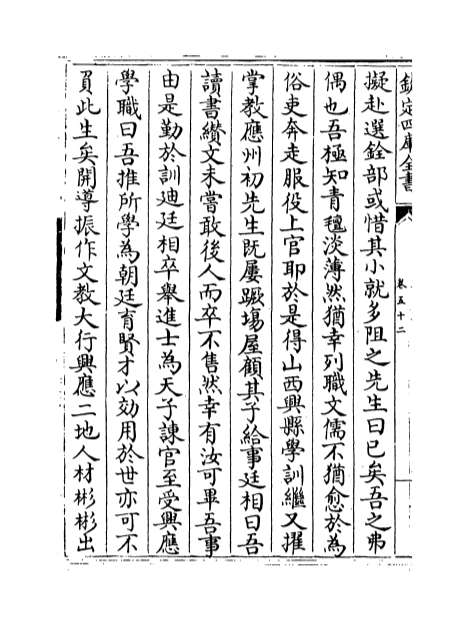 欽定四庫全書
卷五十二
擬赴選銓部或惜其小就多阻之先生曰已矣吾之弗
偶也吾極知青氊淡薄然猶幸列職文儒不猶愈於為
俗吏奔走服役上官耶於是得山西興縣學訓繼又擢
掌教應州初先生既屢蹶場屋顧其子給事廷相曰吾
讀書纘文未嘗敢後人而卒不售然幸有汝可畢吾事
由是勤於訓迪廷相卒舉進士為天子諫官至受興應
學職曰吾推所學為朝廷育賢才以効用於世亦可不
負此生矣開導振作文教大行興應二地人材彬彬出